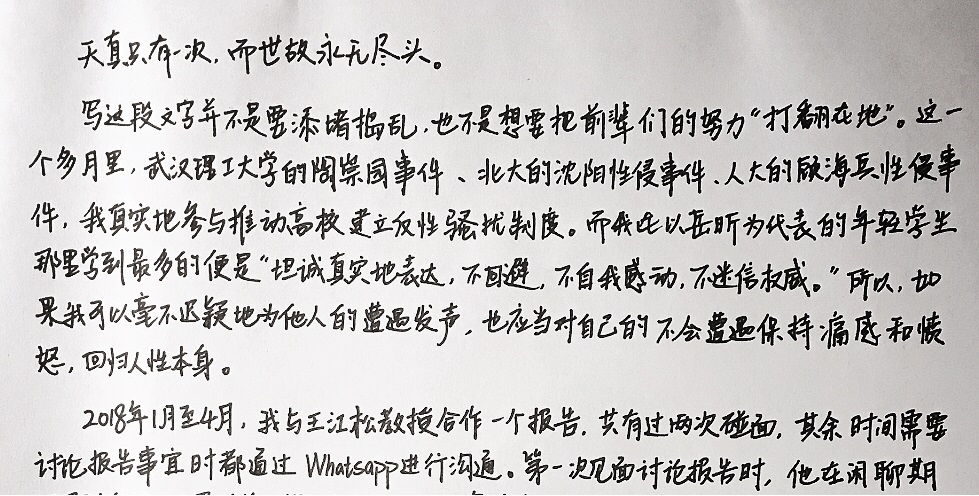 天真只有一次，而世故永无尽头。
写这段文字并不是要添堵捣乱，也不是想要把前辈们的努力“打翻在地”。这一
个多月里，武汉理工大学的陶崇园事件、北大的沈阳性侵事件、人大的顾海兵性侵事
件，我真实地参与推动高校建立反性骚扰制度。而我从以岳昕为代表的年轻学生
那里学到最多的便是“坦诚真实地表达，不回避，不自我感动，不迷信权威。”所以，如
果我可以毫不迟疑地为他人的遭遇发声，也应当对自己的不会遭遇保持痛感和愤
怒，回归人性本身。
2018年1月至4月，我与王江松教授合作一个报告，共有过两次碰面，其余时间需要
讨论报告事宜时都通过Whatsapp进行沟通。第一次见面讨论报告时，他在闲聊期